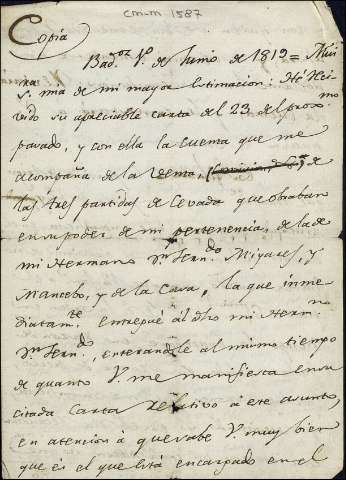 cm-m 1587
Copia
Bad.oz 1.º de Junio de 1812 = Mui
s.ra mia de mi mayor estimacion: He Rei
vido su apreciable carta del 23 del prox.mo
pasado, y con ella la cuenta que me
acompaña de la venta, de
las tres partidas de Cevada que obraban
en su poder de mi pertenencia, de la de
mi Hermano D.n Fern.do Miyares, y
Mancebo, y de la Cava, la que inme
diatam.te entregué al dho mi Herm.no
D.n Fern.do, enterandole al mismo tiempo
de quanto V. me manifiesta en su
citada Carta relativo á este asunto,
en atencion á que sabe V. muy bien
que es el que está encargado en el